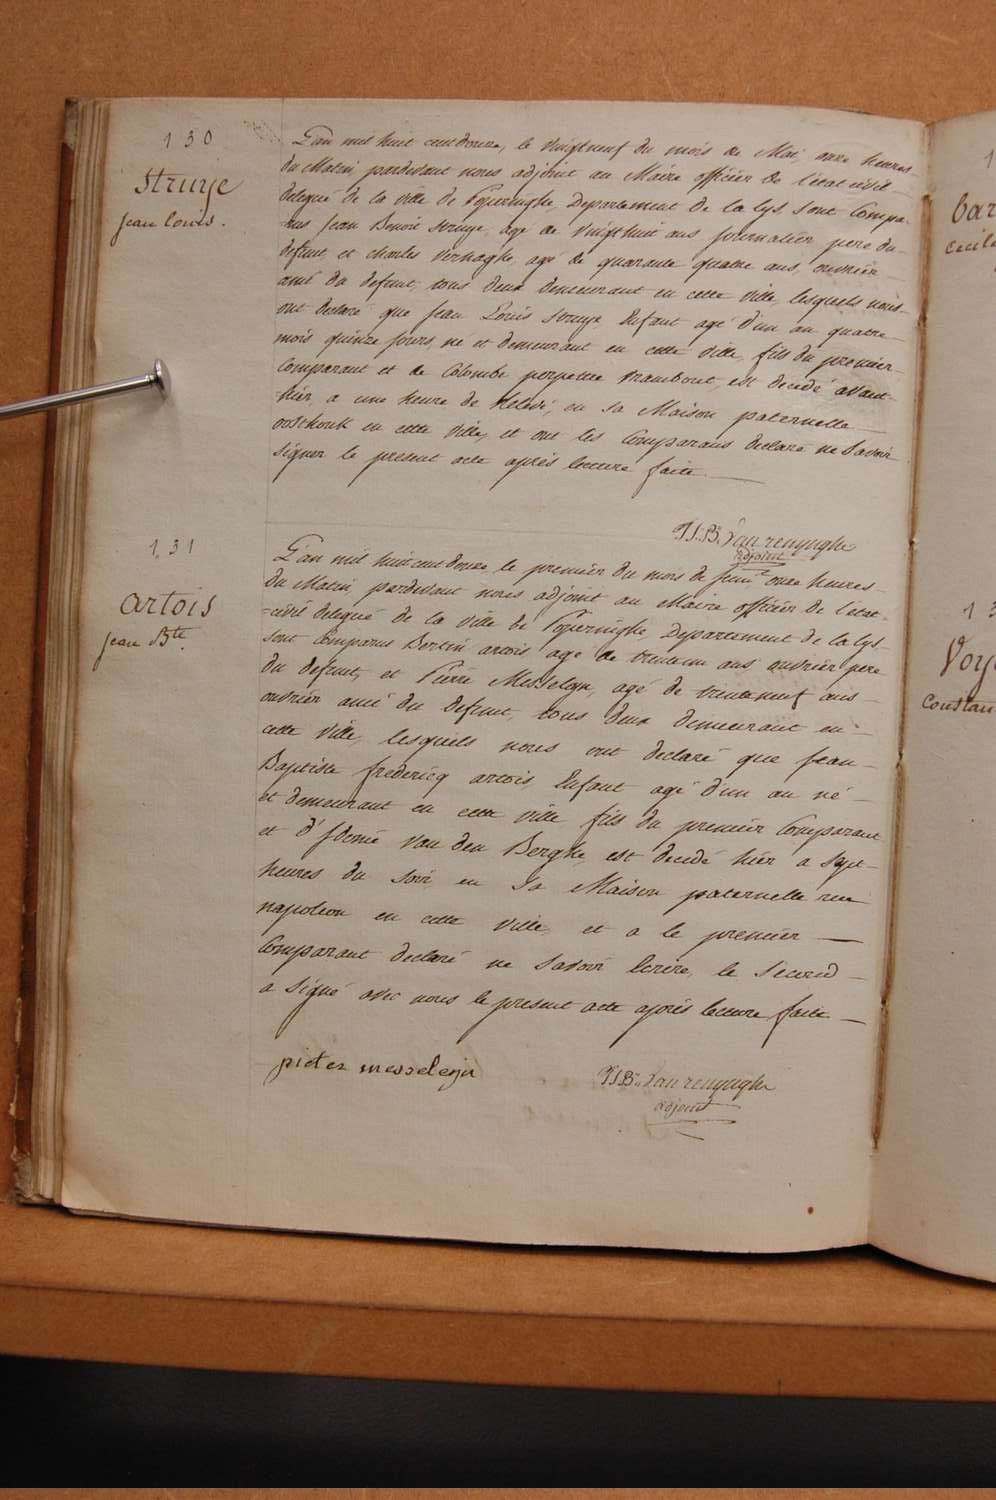 130
Struye
Jean Louis.
L'an mil huit cent douze, le vingt neuf du mois de Mai, onze heures
du Matin, pardevant nous adjoint au Maire officier de l'état civil
delegué de la ville de Poperinghe, Departement de la Lys, sont Compa-
=rus Jean Benoit Struye, agé de vingt huit ans journalier pere du
defunt, et Charles Verhaghe, agé de quarante quatre ans, ouvrier
ami du defunt, tous deux demeurant en cette ville, lesquels nous
ont declaré que Jean Louis Struye Enfant agé d'un an quatre
mois quinze jours, né et demeurant en cette ville, fils du premier
Comparant et de Colombe perpetue, est decedé avant
hier a une heure de relevé, en sa Maison paternelle
oosthouk en cette ville, et ont les Comparans declaré ne savoir
signer le present acte aprés lecture faite.
P.J.B. Van renynghe
adjoint
131
artois
Jean Bte.
L'an mil huit cent douze, le premier du mois de Juin, onze heures
du Matin pardevant nous adjoint au Maire officier de l'etat
=civil delegué de la ville de Poperinghe Departement de la Lys
sont Comparus Bertin artois agé de trente un ans ouvrier pere
du defunt, et Pierre Messeleyn, agé de trente neuf ans
ouvrier ami du defunt, tous deux demeurant en
cette ville, lesquels nous ont declaré que Jean
Baptiste fredericq artois, Enfant agé d'un an né
et demeurant en cette ville fils du premier Comparant
et d'Idonie Van den Berghe est decedé hier a sept
heures du soir, en sa Maison paternelle rue
napoleon en cette ville, et a le premier
Comparant declaré ne savoir Ecrire, le second
a signé avec nous le present acte aprés lecture faite
pieter messeleyn
P.J.B. Van renynghe
adjoint
1
Bar
Cecile
13
Voy
Constan